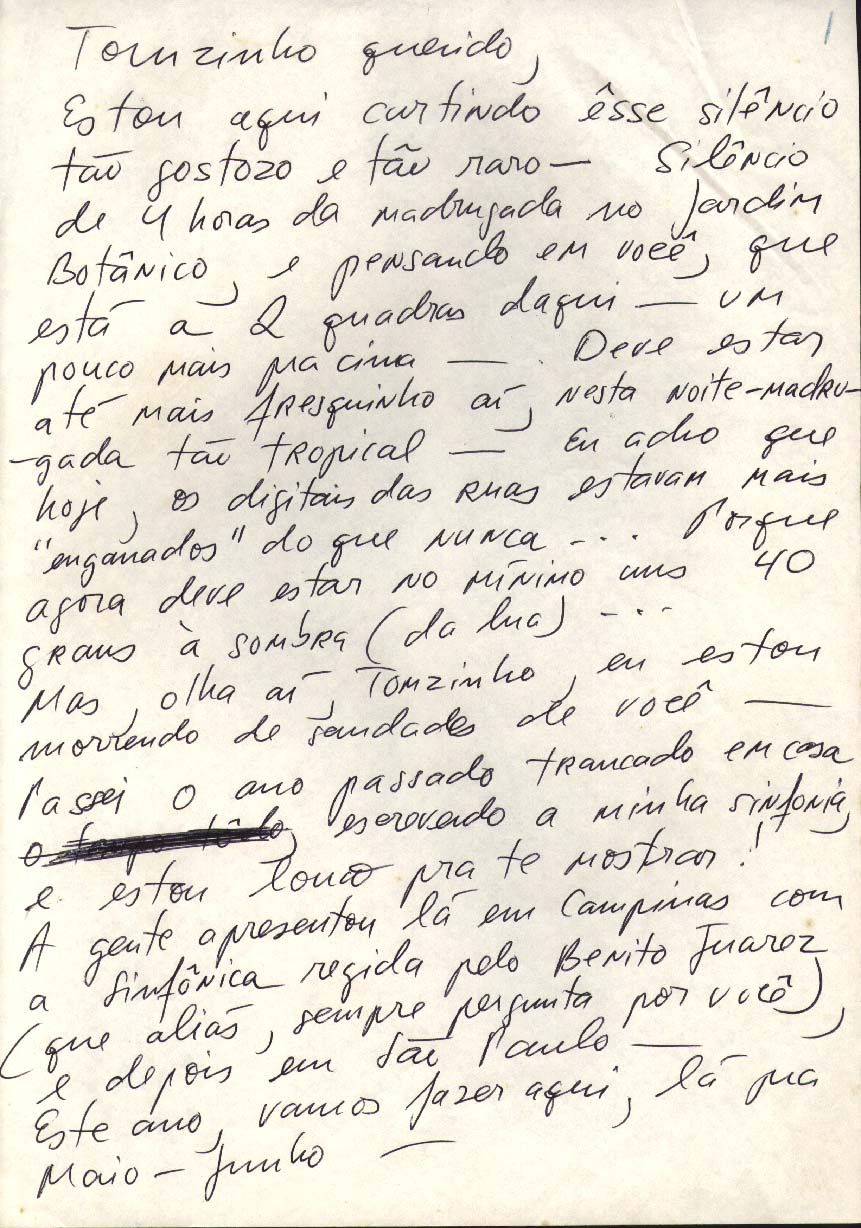 1
Tomzinho querido,
Estou aqui curtindo êsse silêncio
tão gostozo e tão raro — Silêncio
de 4 horas da madrugada no Jardim
Botânico, e pensando em você, que
está a 2 quadras daqui — um
pouco mais pra cima — . Deve estar
até mais fresquinho aí, nesta noite-madru-
-gada tão tropical — Eu acho que
hoje, os digitais das ruas estavam mais
"enganados" do que nunca ... Porque
agora deve estar no mínimo uns 40
graus à sombra (da lua) ...
Mas, olha aí, Tomzinho, eu estou
morrendo de saudades de você —
Passei o ano passado trancado em casa
o tempo tôdo, escrevendo a minha sinfonia,
e estou louco pra te mostrar!
A gente apresentou lá em Campinas com
a Sinfônica regida pelo Benito Juarez
(que aliás, sempre pergunta por você),
e depois em São Paulo —
Este ano, vamos fazer aqui, lá pra
Maio - Junho —